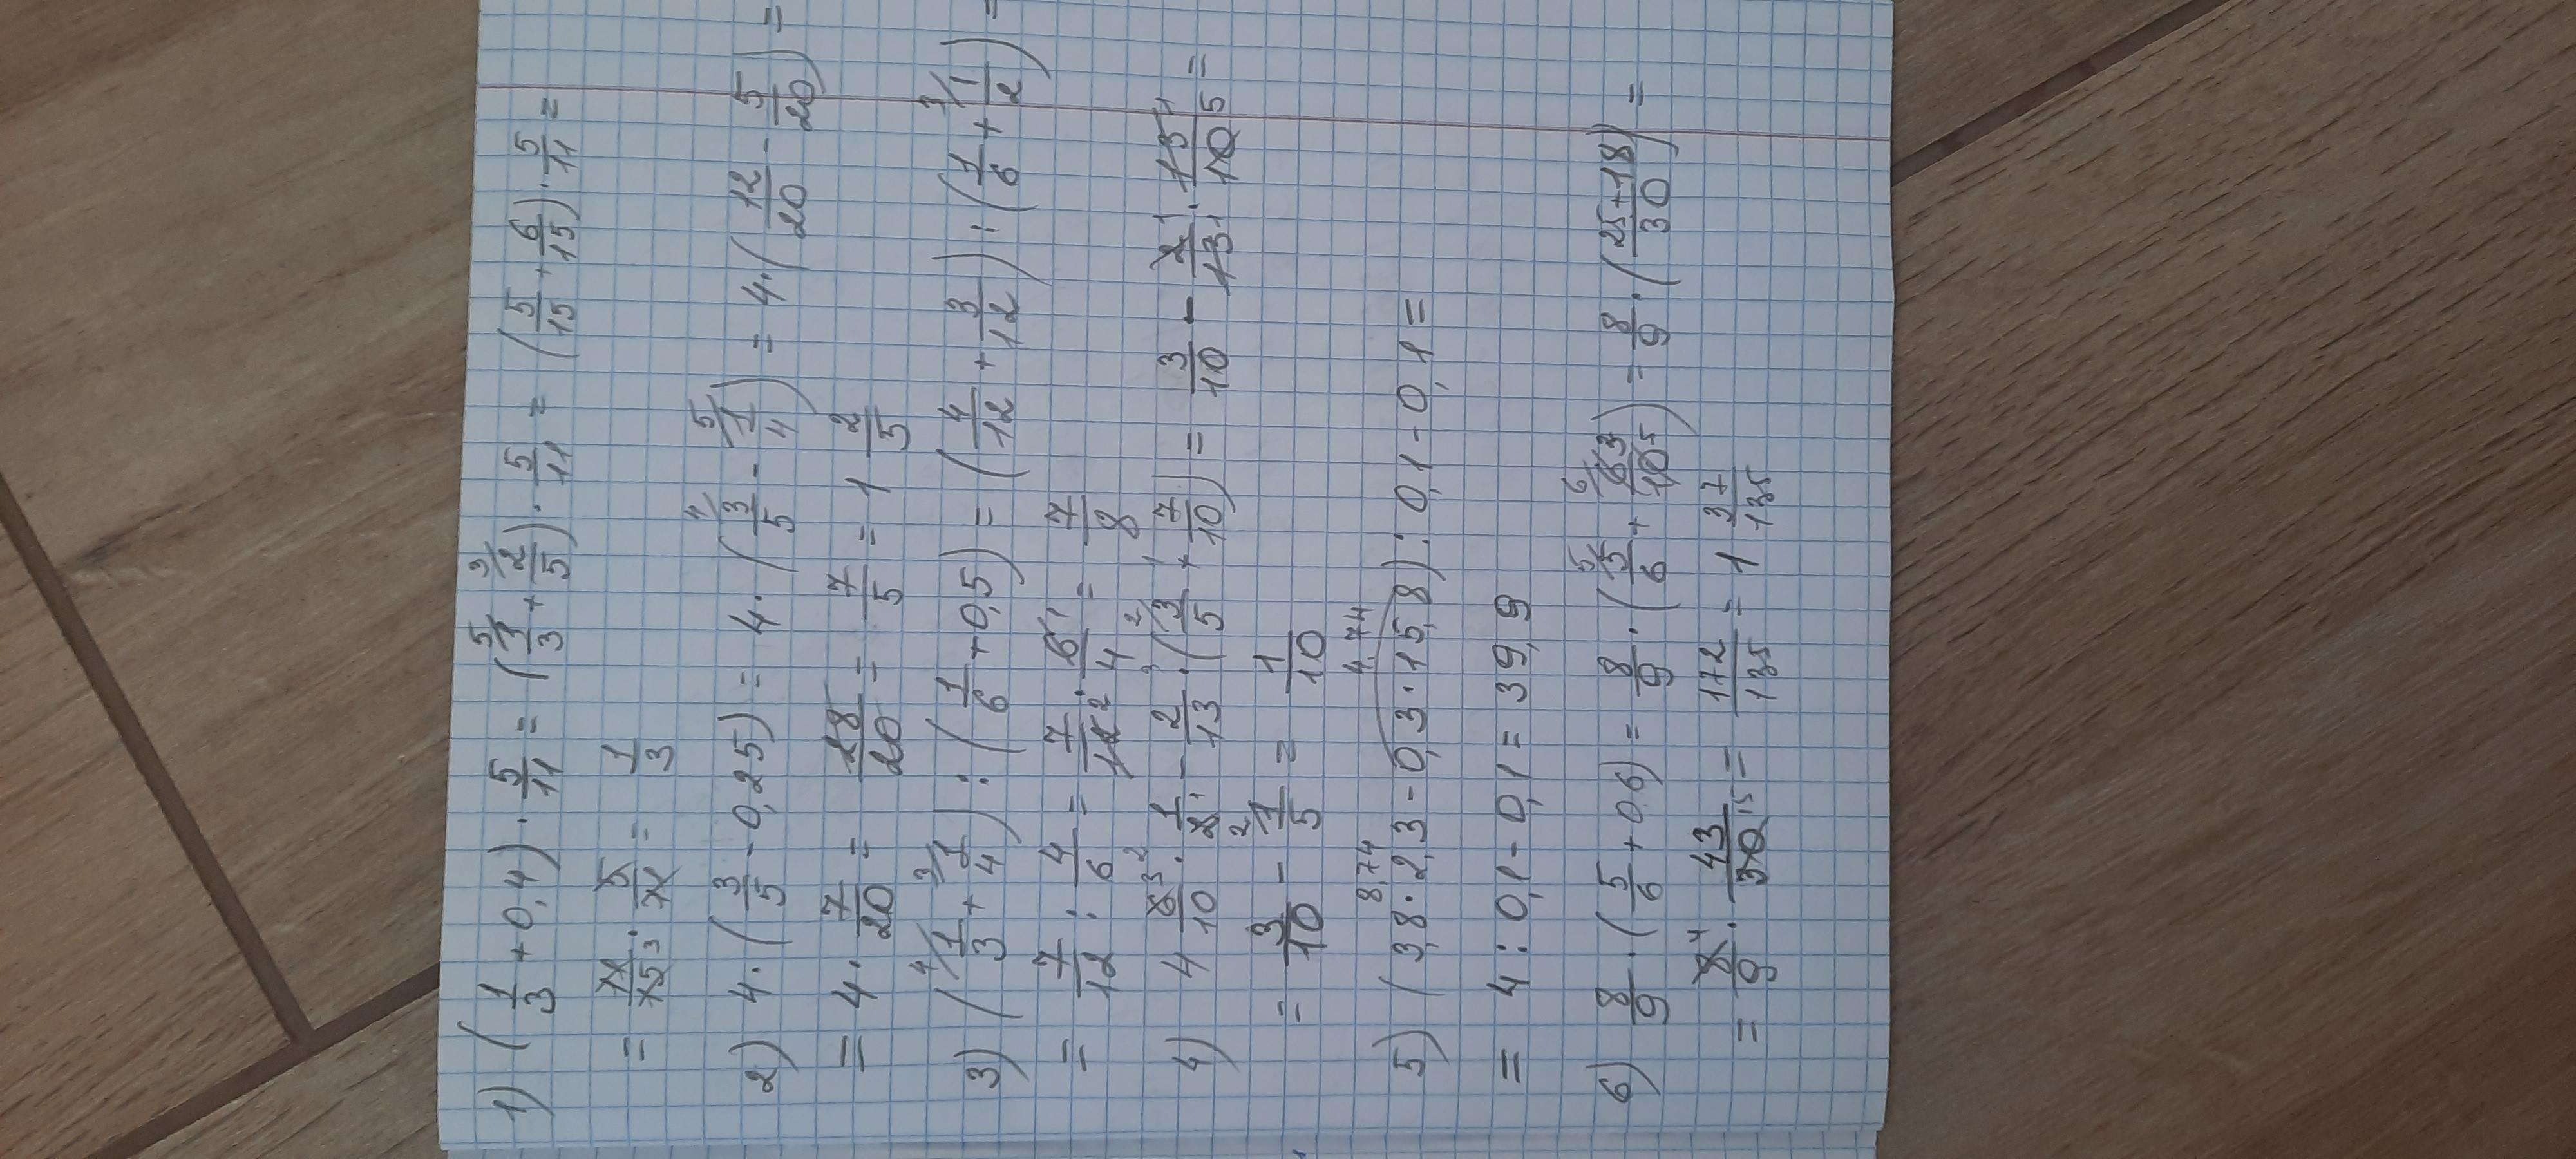 1) (1/3 + 0,4) · 5/11 = (5/ 1/3 + 3/ 2/5) · 5/11 = (5/15 + 6/15) · 5/11 =
= 11/15 3 · 5/11 = 1/3
2) 4 · (3/5 - 0,25) = 4 · (4/ 3/5 - 5/ 1/4) = 4 · (12/20 - 5/20) =
= 4 · 7/20 = 28/20 = 7/5 = 1 2/5
3) (4/ 1/3 + 3/ 1/4) : (1/6 + 0,5) = (4/12 + 3/12) : (1/6 + 3/ 1/2) =
= 7/12 : 4/6 = 7/12 2 · 6 1/4 = 7/8
4) 6 3/10 · 1/2 - 2/13 · (2/ 3/5 + 1/ 7/10) = 3/10 - 2 1/13 1 · 13 1/10 5 =
= 3/10 - 2/ 1/5 = 1/10
8,74 4,74
5) (3,8 · 2,3 - 0,3 · 15,8) : 0,1 - 0,1 =
= 4 : 0,1 - 0,1 = 39,9
6) 8/9 · (5/6 + 0,6) = 8/9 · (5/ 5/6 + 6/ 6 3/10 5) = 8/9 · (25+18/30) =
= 8 4/9 · 43/30 15 = 172/135 = 1 37/135